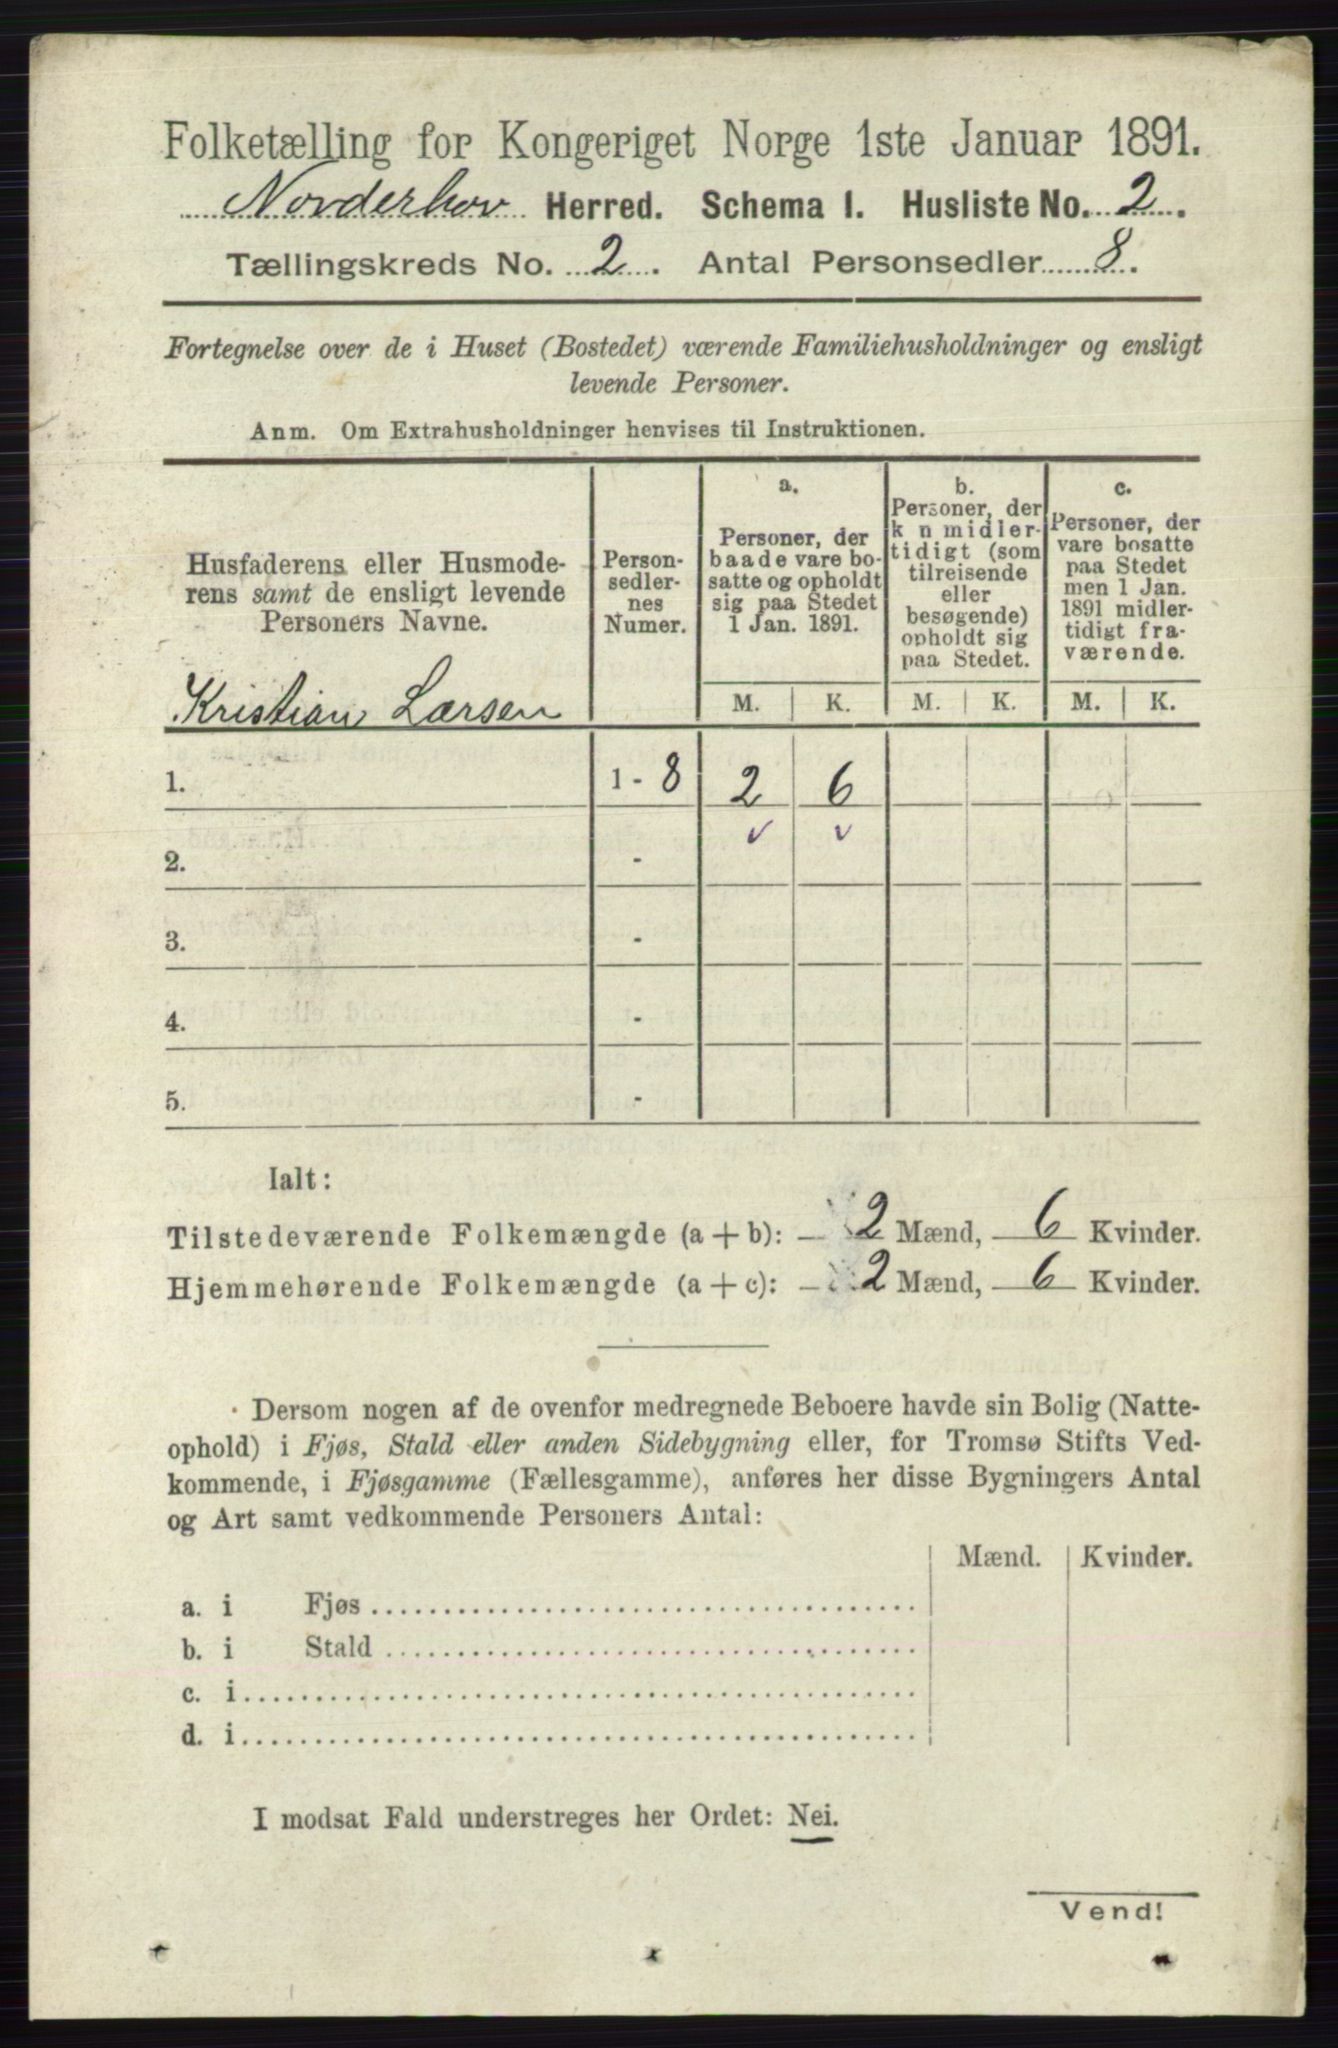 Folketælling for Kongeriget Norge 1ste Januar 1891.
Norderhov Herred. Schema I. Husliste No. 2.
Tællingskreds No. 2. Antal Personsedler 8.
Fortegnelse over de i Huset (Bostedet) værende Familiehusholdninger og ensligt
levende Personer.
Anm. Om Extrahusholdninger henvises til Instruktionen.
Husfaderens eller Husmode-
rens samt de ensligt levende
Personers Navne.
Person-
sedler-
nes
Numer.
a.
Personer, der
baade vare bo-
satte og opholdt
sig paa Stedet
1 Jan. 1891.
b.
Personer, der
k n midler-
tidigt (som
tilreisende
eller
besøgende)
opholdt sig
paa Stedet.
c.
Personer, der
vare bosatte
paa Stedet
men 1 Jan.
1891 midler-
tidigt fra-
værende.
M. K. M. K. M. K.
Kristian Larsen
1. 1 - 8 2 6
2. -
3. -
4. -
5. -
Ialt:
Tilstedeværende Folkemængde (a + b): 2 Mænd, 6 Kvinder.
Hjemmehørende Folkemængde (a + c): 2 Mænd, 6 Kvinder.
Dersom nogen af de ovenfor medregnede Beboere havde sin Bolig (Natte-
ophold) i Fjøs, Stald eller anden Sidebygning eller, for Tromsø Stifts Ved-
kommende, i Fjøsgamme (Fællesgamme), anføres her disse Bygningers Antal
og Art samt vedkommende Personers Antal:
Mænd. Kvinder.
a. i Fjøs
b. i Stald
c. i
d. i
I modsat Fald understreges her Ordet: Nei.
Vend!